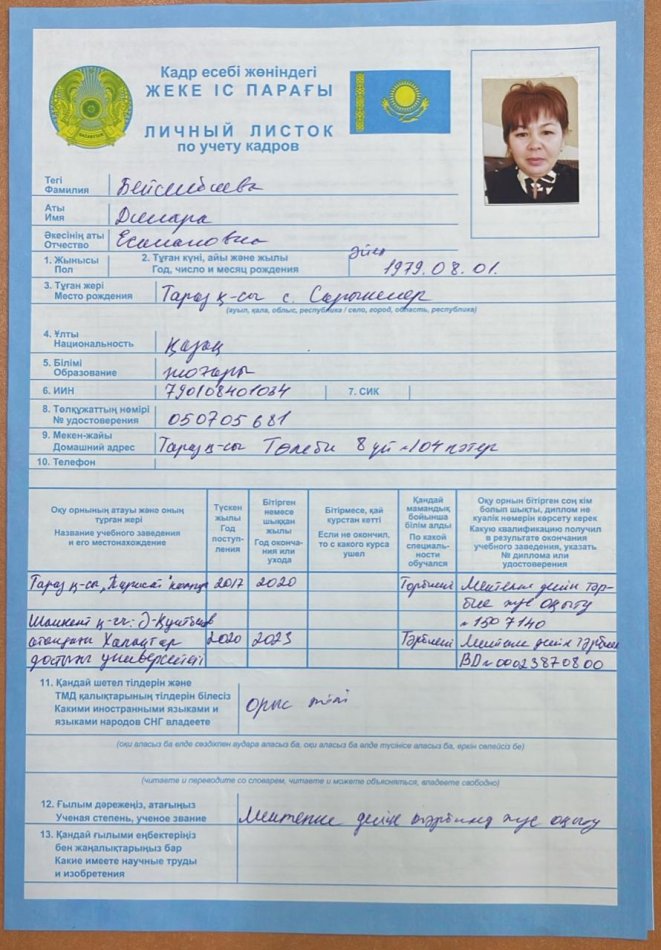 Кадр есебі жөніндегі
ЖЕКЕ ІС ПАРАҒЫ
ЛИЧНЫЙ ЛИСТОК
по учету кадров
Тегі
Фамилия
Аты
Имя Динара
Әкесінің аты
Отчество
1. Жынысы
Пол
2. Туған күні, айы және жылы
Год, число и месяц рождения
әйел
1979.08.01.
3. Туған жері
Место рождения Тараз қ-сы с.
(ауыл, қала, облыс, республика / село, город, область, республика)
4. Ұлты
Национальность қазақ
5. Білімі
Образование жоғары
6. ИИН 790108401034 7. СИК
8. Төлқұжаттың нөмірі
№ удостоверения 050705681
9. Мекен-жайы
Домашний адрес Тараз қ-сы Төле би 8 үй №104 пәтер
10. Телефон
Оқу орнының атауы және оның тұрған жері
Название учебного заведения и его местонахождение
Түскен жылы
Год поступ-ления
Бітірген немесе шыққан жылы
Год оконча-ния или ухода
Бітірмесе, қай курстан кетті
Если не окончил, то с какого курса ушел
Қандай мамандық бойынша білім алды
По какой специаль-ности обучался
Оқу орнын бітірген соң кім болып шықты, диплом не куәлік нөмерін көрсету керек
Какую квалификацию получил в результате окончания учебного заведения, указать № диплома или удостоверения
Тараз қ-сы 2017 2020 Мектепке дейін тәр-
бие және оқыту
№1507140
Шымкент қ-сы
атындағы Халықтар 2020 2023 Тәрбиеші Мектепке дейін тәрбие
достығы университеті BD №00023870800
11. Қандай шетел тілдерін және
ТМД қалықтарының тілдерін білесіз
Какими иностранными языками и
языками народов СНГ владеете
орыс тілі
(оқи аласыз ба елде сөздікпен аудара аласыз ба, оқи аласыз ба елде түсінісе аласыз ба, еркін сөлейсіз бе)
(читаете и переводите со словарем, читаете и можете объясняться, владеете свободно)
12. Ғылым дәрежеңіз, атағыңыз
Ученая степень, ученое звание Мектепке дейін тәрбиелеу және оқыту
13. Қандай ғылыми еңбектеріңіз
бен жаңалықтарыңыз бар
Какие имеете научные труды
и изобретения